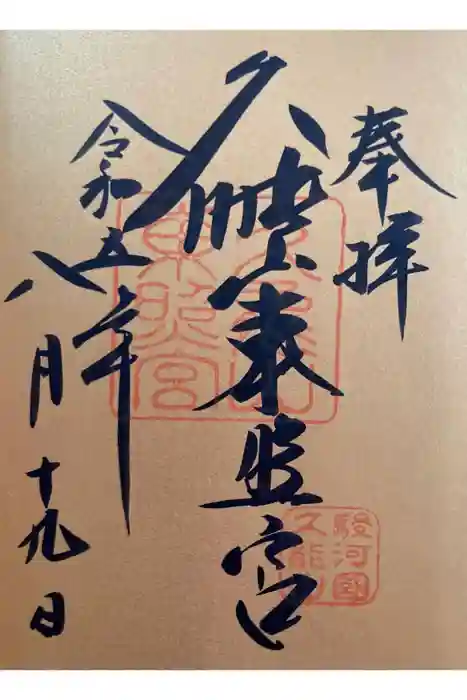 奉拝
久能山東照宮
令和五年
八月十九日
久能山
東照宮
駿河国
久能山